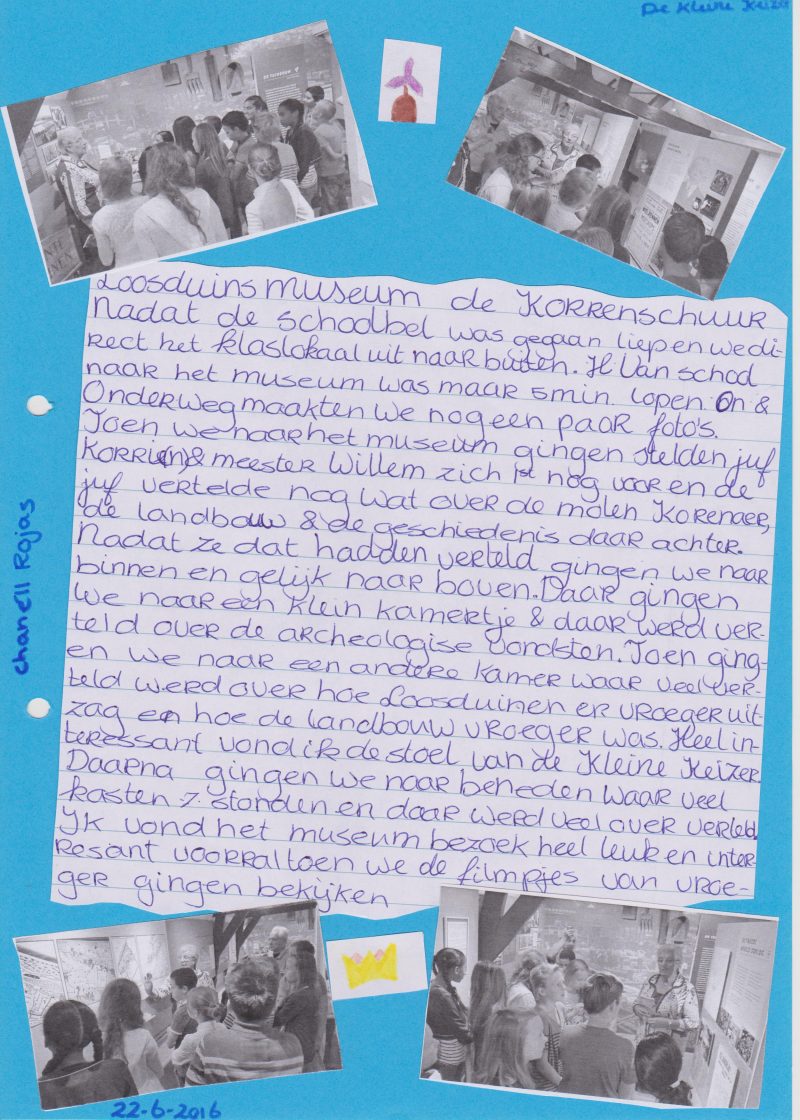 De Kleine Keizer
Loosduins museum de Korrenschuur
Nadat de schoolbel was gegaan liepen we di-
rect het klaslokaal uit naar buiten. Van school
naar het museum was maar 5 min lopen. On &
Onderweg maakten we nog een paar foto's.
Toen we naar het museum gingen stelden juf
Korri(n) & meester Willem zich 1st nog voor en de
juf vertelde nog wat over de molen Korenaer,
de landbouw & de geschiedenis daar achter.
Nadat ze dat hadden verteld gingen we naar
binnen en gelijk naar boven. Daar gingen
we naar een klein kamertje & daar werd ver-
teld over de archeologise vondsten. Toen ging-
en we naar een andere kamer waar veel ver-
teld werd over hoe Loosduinen er vroeger uit-
zag en hoe de landbouw vroeger was. Heel in-
teressant vond ik de stoel van de Kleine Keizer.
Daarna gingen we naar beneden waar veel
kasten stonden en daar werd veel over verteld.
Ik vond het museum bezoek heel leuk en inter-
resant voorral toen we de filmpjes van vroe-
ger gingen bekijken
chanell Rojas
22-6-2016